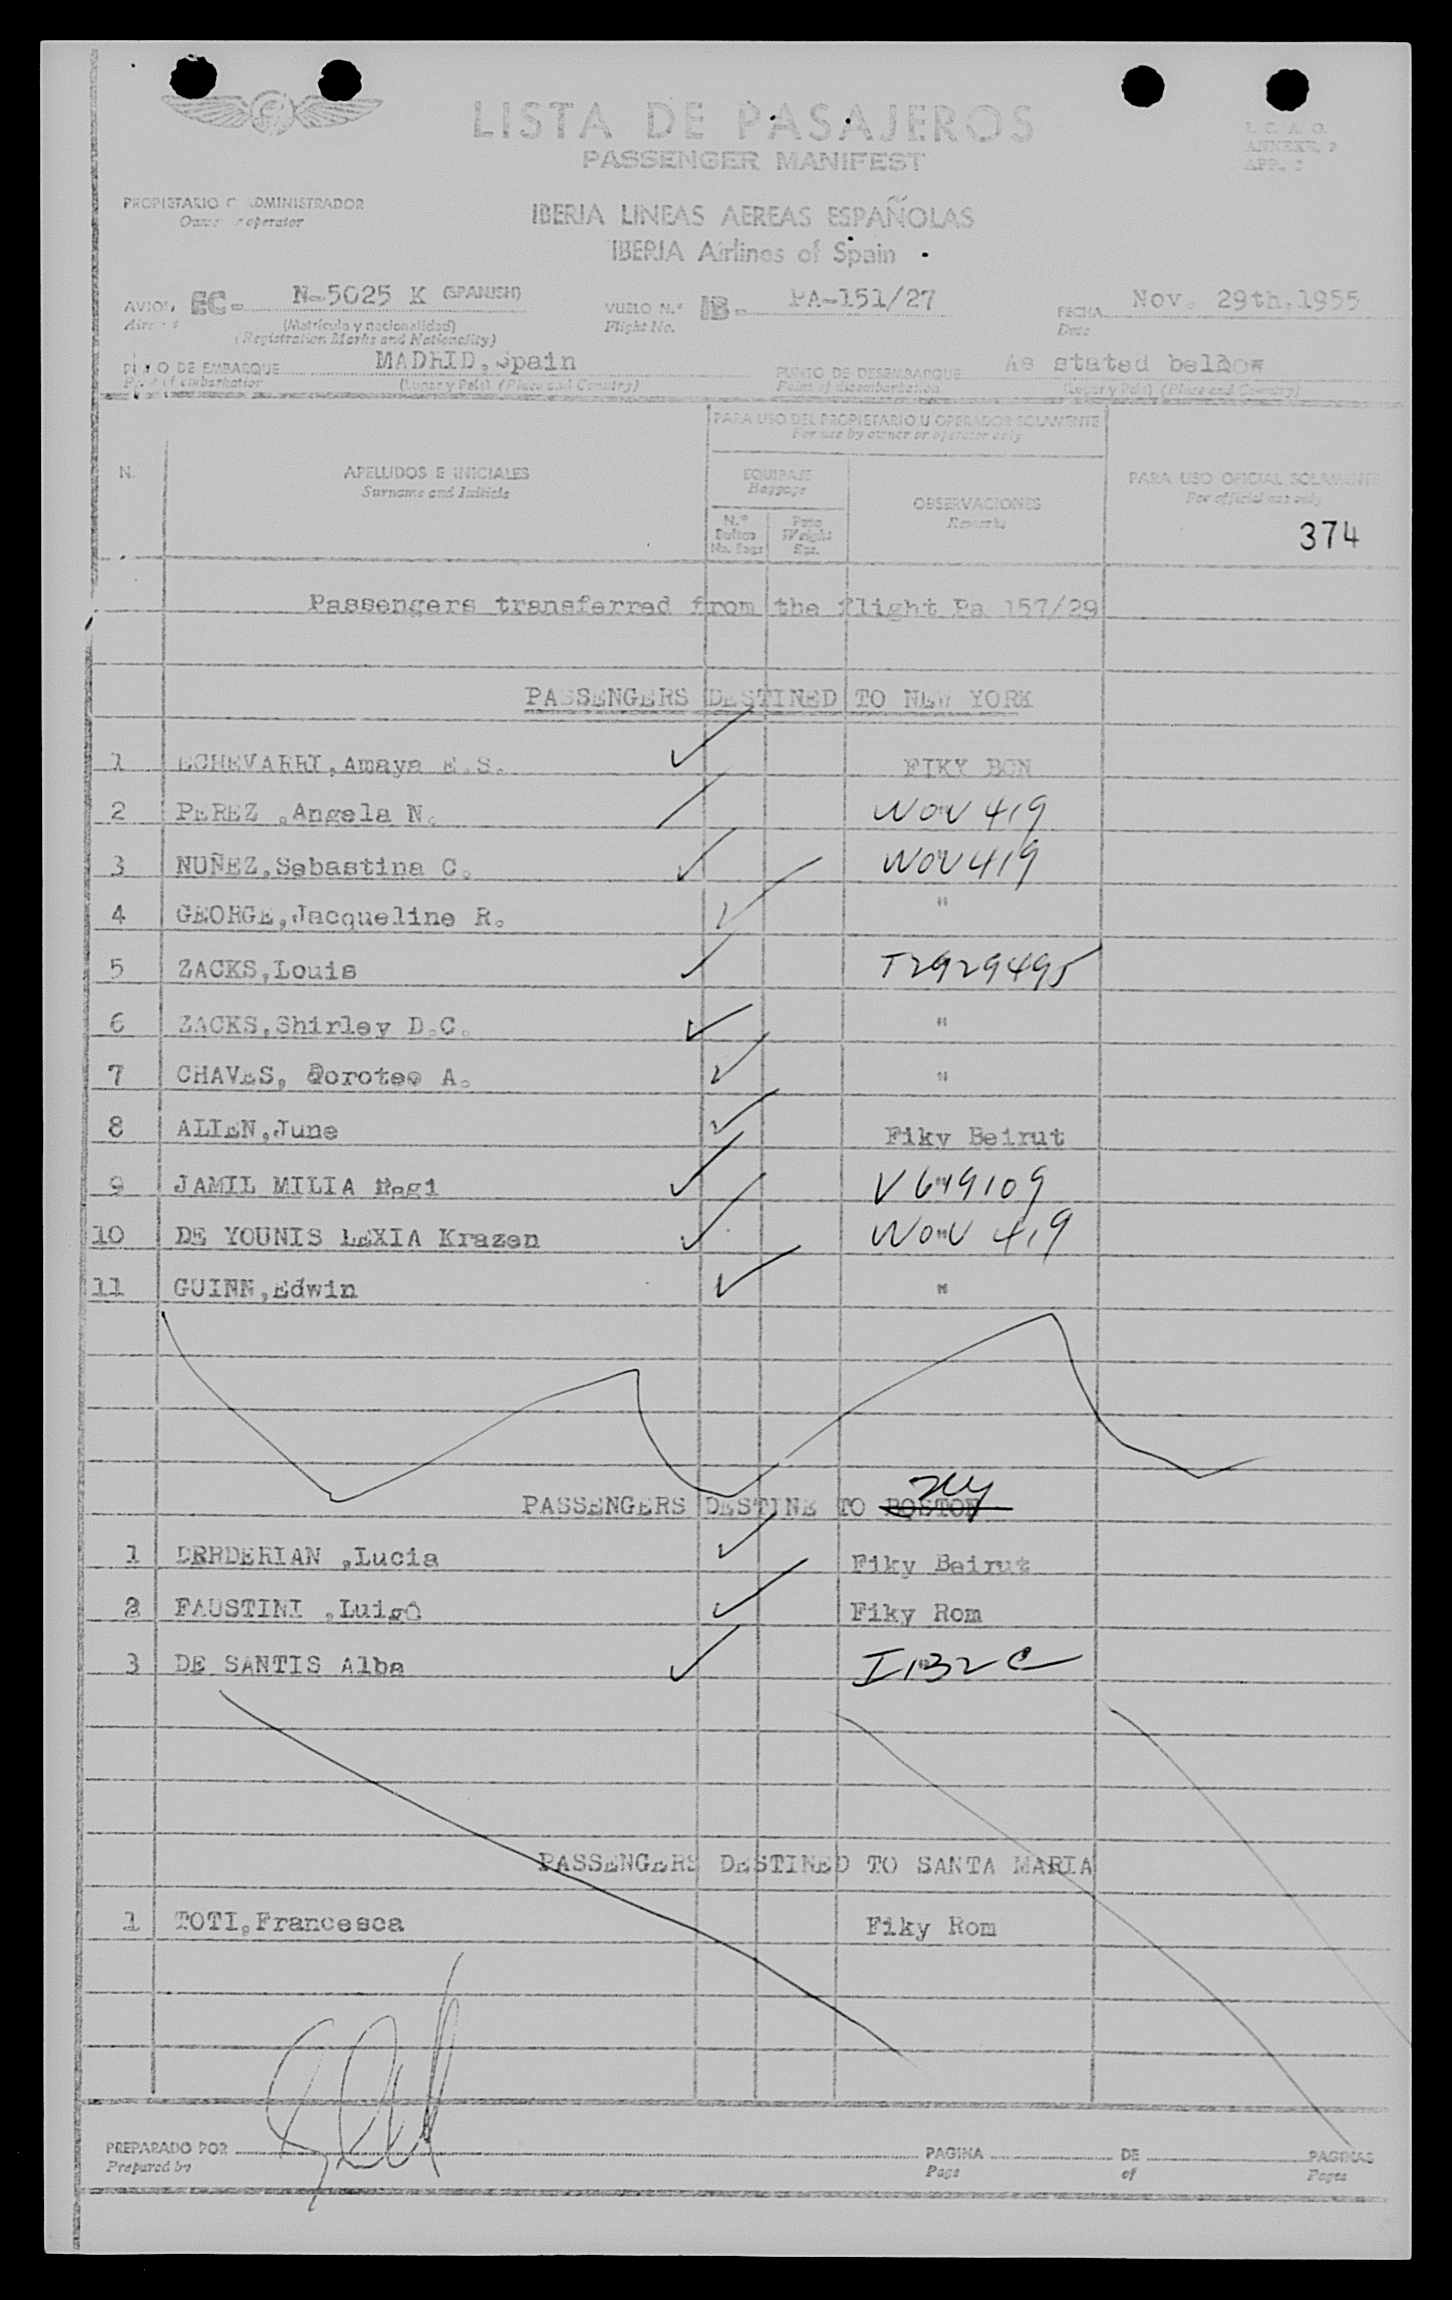 LISTA DE PASAJEROS
PASSENGER MANIFEST
I. C. A. O.
ANNEXE, 9
APP. 2
PROPIETARIO O ADMINISTRADOR
Owner operator
IBERIA LINEAS AEREAS ESPAÑOLAS
IBERIA Airlines of Spain
AVION, EC- N-5025 K (SPANISH) VUELO N.º IB- PA-151/27 FECHA Nov. 29th.1955
Aircraft (Matrícula y nacionalidad) Flight No. Date
(Registration Marks and Nationality)
PUNTO DE EMBARQUE MADRID,Spain PUNTO DE DESEMBARQUE As stated bellow
Point of embarkation (Lugar y País) (Place and Country) Point of disembarkation (Lugar y País) (Place and Country)
PARA USO DEL PROPIETARIO U OPERADOR SOLAMENTE
For use by owner or operator only
N. APELLIDOS E INICIALES EQUIPAJE OBSERVACIONES PARA USO OFICIAL SOLAMENTE
Surname and Initials Baggage Remarks For official use only
N.º Bultos Peso
No. Bags Weight Kgs.
374
Passengers transferred from the flight Pa 157/29
PASSENGERS DESTINED TO NEW YORK
1 ECHEVARRI,Amaya E.S. FIKY BCN
2 PEREZ ,Angela N. WOW 419
3 NUÑEZ,Sebastina C. WOW 419
4 GEORGE,Jacqueline R. "
5 ZACKS,Louis T2929495
6 ZACKS,Shirley D.C. "
7 CHAVES, Doroteo A. "
8 ALIEN,June Fiky Beirut
9 JAMIL MILIA Negi V649109
10 DE YOUNIS LEXIA Krazen WOW 419
11 GUINN,Edwin "
PASSENGERS DESTINE TO BOSTON NY
1 DERDERIAN ,Lucia Fiky Beirut
2 FAUSTINI ,Luigo Fiky Rom
3 DE SANTIS Alba I132C
PASSENGERS DESTINED TO SANTA MARIA
1 TOTI,Francesca Fiky Rom
PREPARADO POR PAGINA DE PAGINAS
Prepared by Page of Pages